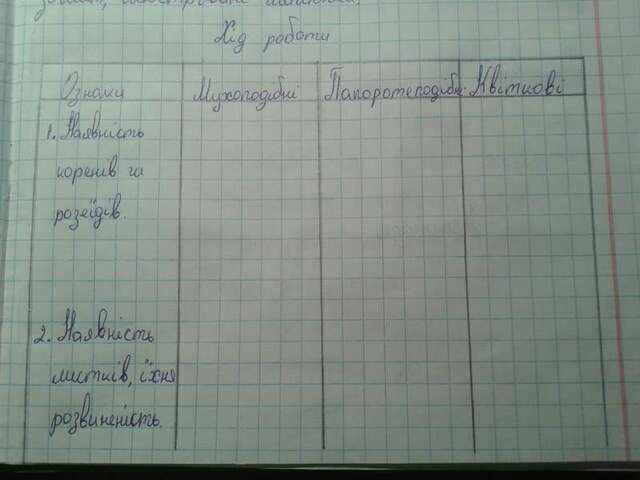 Хід роботи
Ознаки Мохоподібні Папоротеподібні Квіткові
1. Наявність
коренів чи
розеїдів.
2. Наявність
листків, їхня
розвиненість.